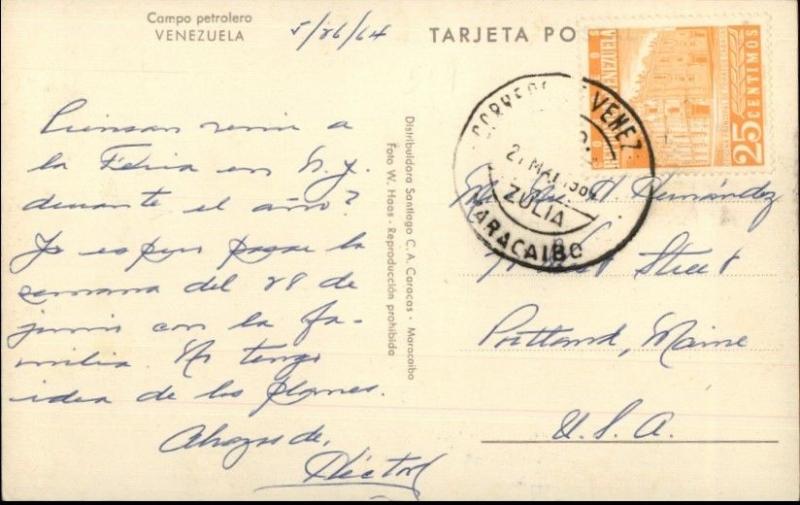 Campo petrolero
VENEZUELA
5/26/64
TARJETA PO
Piensan venir a
la Feria en N.Y.
durante el año?
Yo espero pasar la
semana del 28 de
junio con la fa-
milia. No tengo
idea de los planes.
Abrazos de,
Héctor
Distribuidora Santiago C. A. Caracas - Maracaibo
Foto W. Haas - Reproducción prohibida
CORREOS VENEZ
27 MAY 196
ZULIA
MARACAIBO
CORREOS
VENEZUELA
25 CENTIMOS
H Hernández
Street
Portland, Maine
U.S.A.